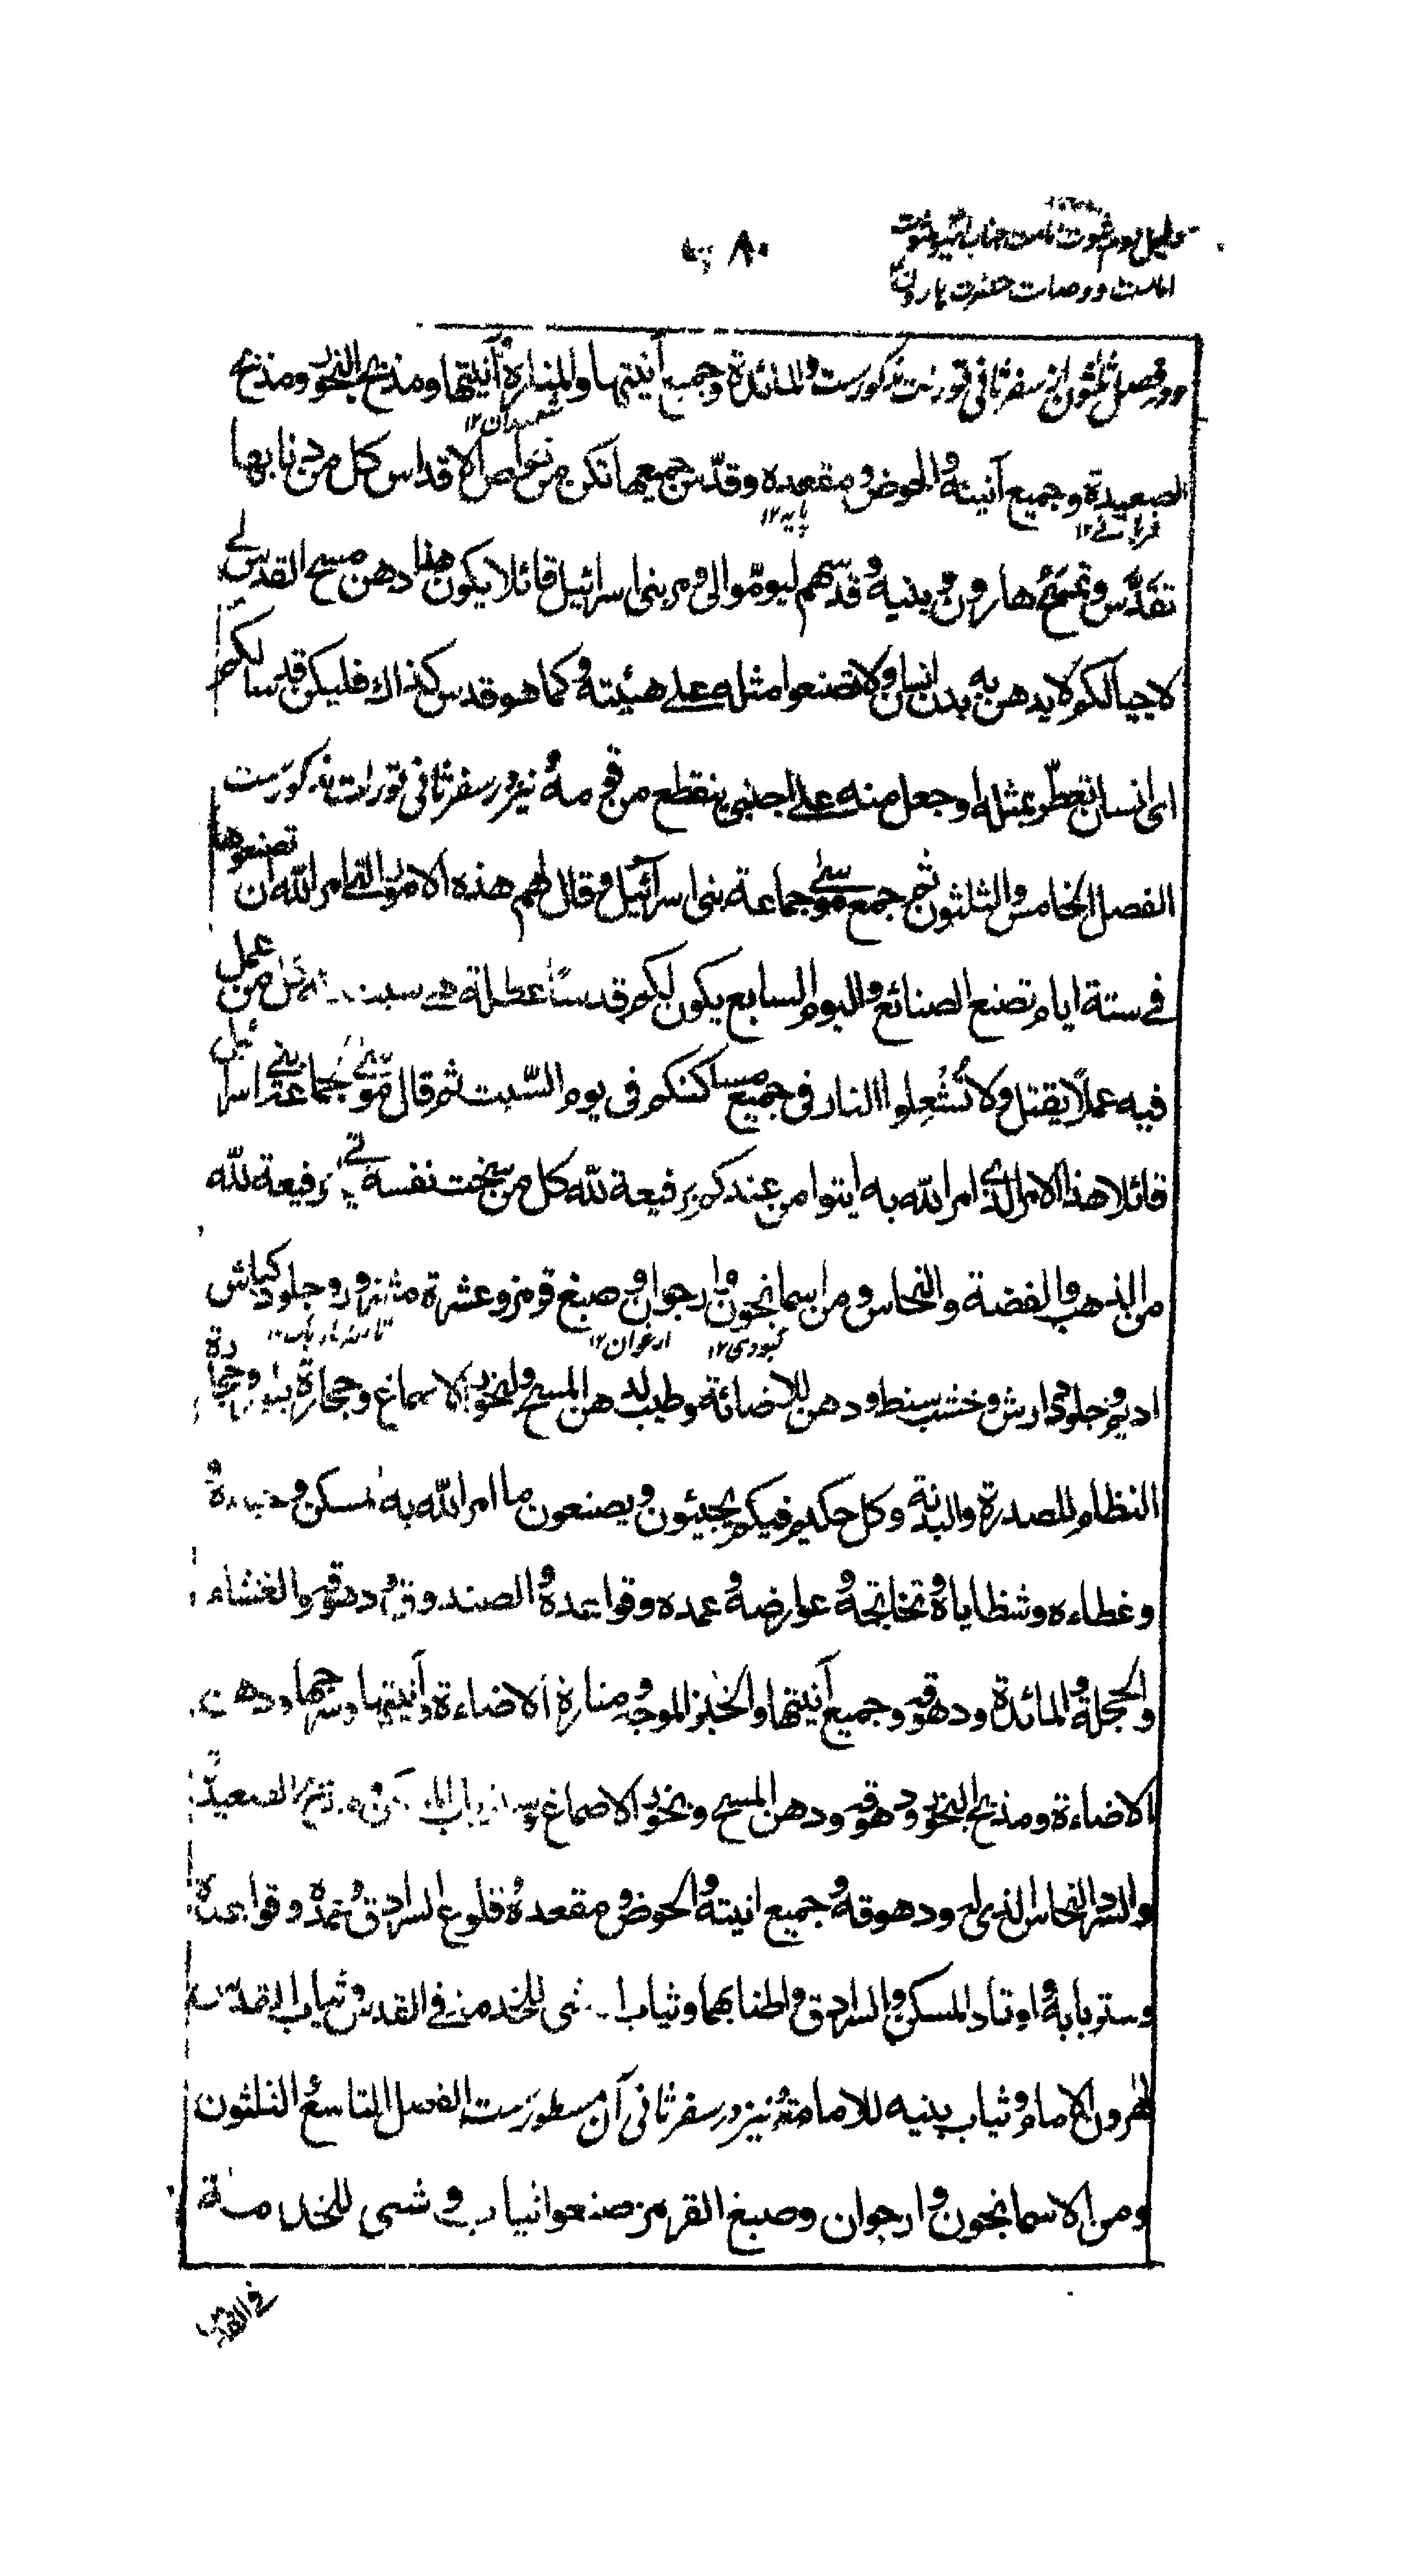 ۸۰
امامت و وصایت حضرت هارون
و در فصل ثلثون از سفر ثانی تورات مذکورست والمائدة وجميع آنيتها والمنارة وآنيتها ومذبح البخور ومذبح
شمعدان ۱۲
الصعيدة وجميع آنيته والحوض ومقعده وقدّس جميعها تكن من خواص الاقداس كل من دنا بها
پایه ۱۲
تقدّس وتمسح هارون وبنيه وقدسهم ليؤمّوا لى ومر بنى اسرائيل قائلا يكون هذا دهن مسح القدس لے
لاجيالكم لا يدهن به بدن انسان ولا تصنعوا مثله على هيئته وكما هو قدس كذاك فليكن قدسا لكم
اى انسان تعطّر بمثله او جعل منه على اجنبى ينقطع من قومه ونیز در سفر ثانی تورات مذکورست
الفصل الخامس والثلثون ثم جمع موسى جماعة بنى اسرآئيل وقال لهم هذه الامور التى امر الله ان تصنعوها
فى ستة ايام تصنع الصنائع واليوم السابع يكون لكم قدسًا عطلة هى سبت كل من عمل
فيه عملًا يقتل ولا تُشْعِلوا النار فى جميع مساكنكم فى يوم السّبت ثم قال موسى لجماعة بنى اسرائيل
قائلا هذا الامر الذى امر الله به ايتوا من عندكم برفيعة لله كل من سخت نفسه برفيعة لله
من الذهب والفضة والنحاس ومن اسمانجون وارجوان وصبغ قرمز وعشرة ومنزور وجلود كباش
کبودی ۱۲ ارغوان ۱۲
اديم وجلود دارش وخشب سنط ودهن للاضائة وطيب لدهن المسح ولبخور الاسماغ وحجارة بلور وحجارة
النظام للصدرة والبدنة وكل حكيم فيكم يجيئون ويصنعون ما امر الله به المسكن و
وغطاءه وشظاياه وتخاتجه وعوارضه وعمده وقواعده والصندوق ودهوقه والغشاء
والحجلة والمائدة ودهوقه وجميع آنيتها والخبز الموجه ومنارة الاضاءة وآنيتها وسرجها ودهن
الاضاءة ومذبح البخور ودهوقه ودهن المسح وبخور الاصماغ الصعيدة
والسرد النحاس الذى له ودهوقه وجميع انيته والحوض ومقعده وقلوع السرادق وعمده وقواعده
وستر بابه واوتاد المسكن والسرادق واطنابهما وثياب الوشى للخدمة فى القدس وثياب القدس
لهرون الامام وثياب بنيه للامامة ونیز در سفر ثانی آن مسطورست الفصل التاسع الثلثون
ومن الاسمانجون وارجوان وصبغ القرمز صنعوا ثياب وشى للخدمة
فى القدس